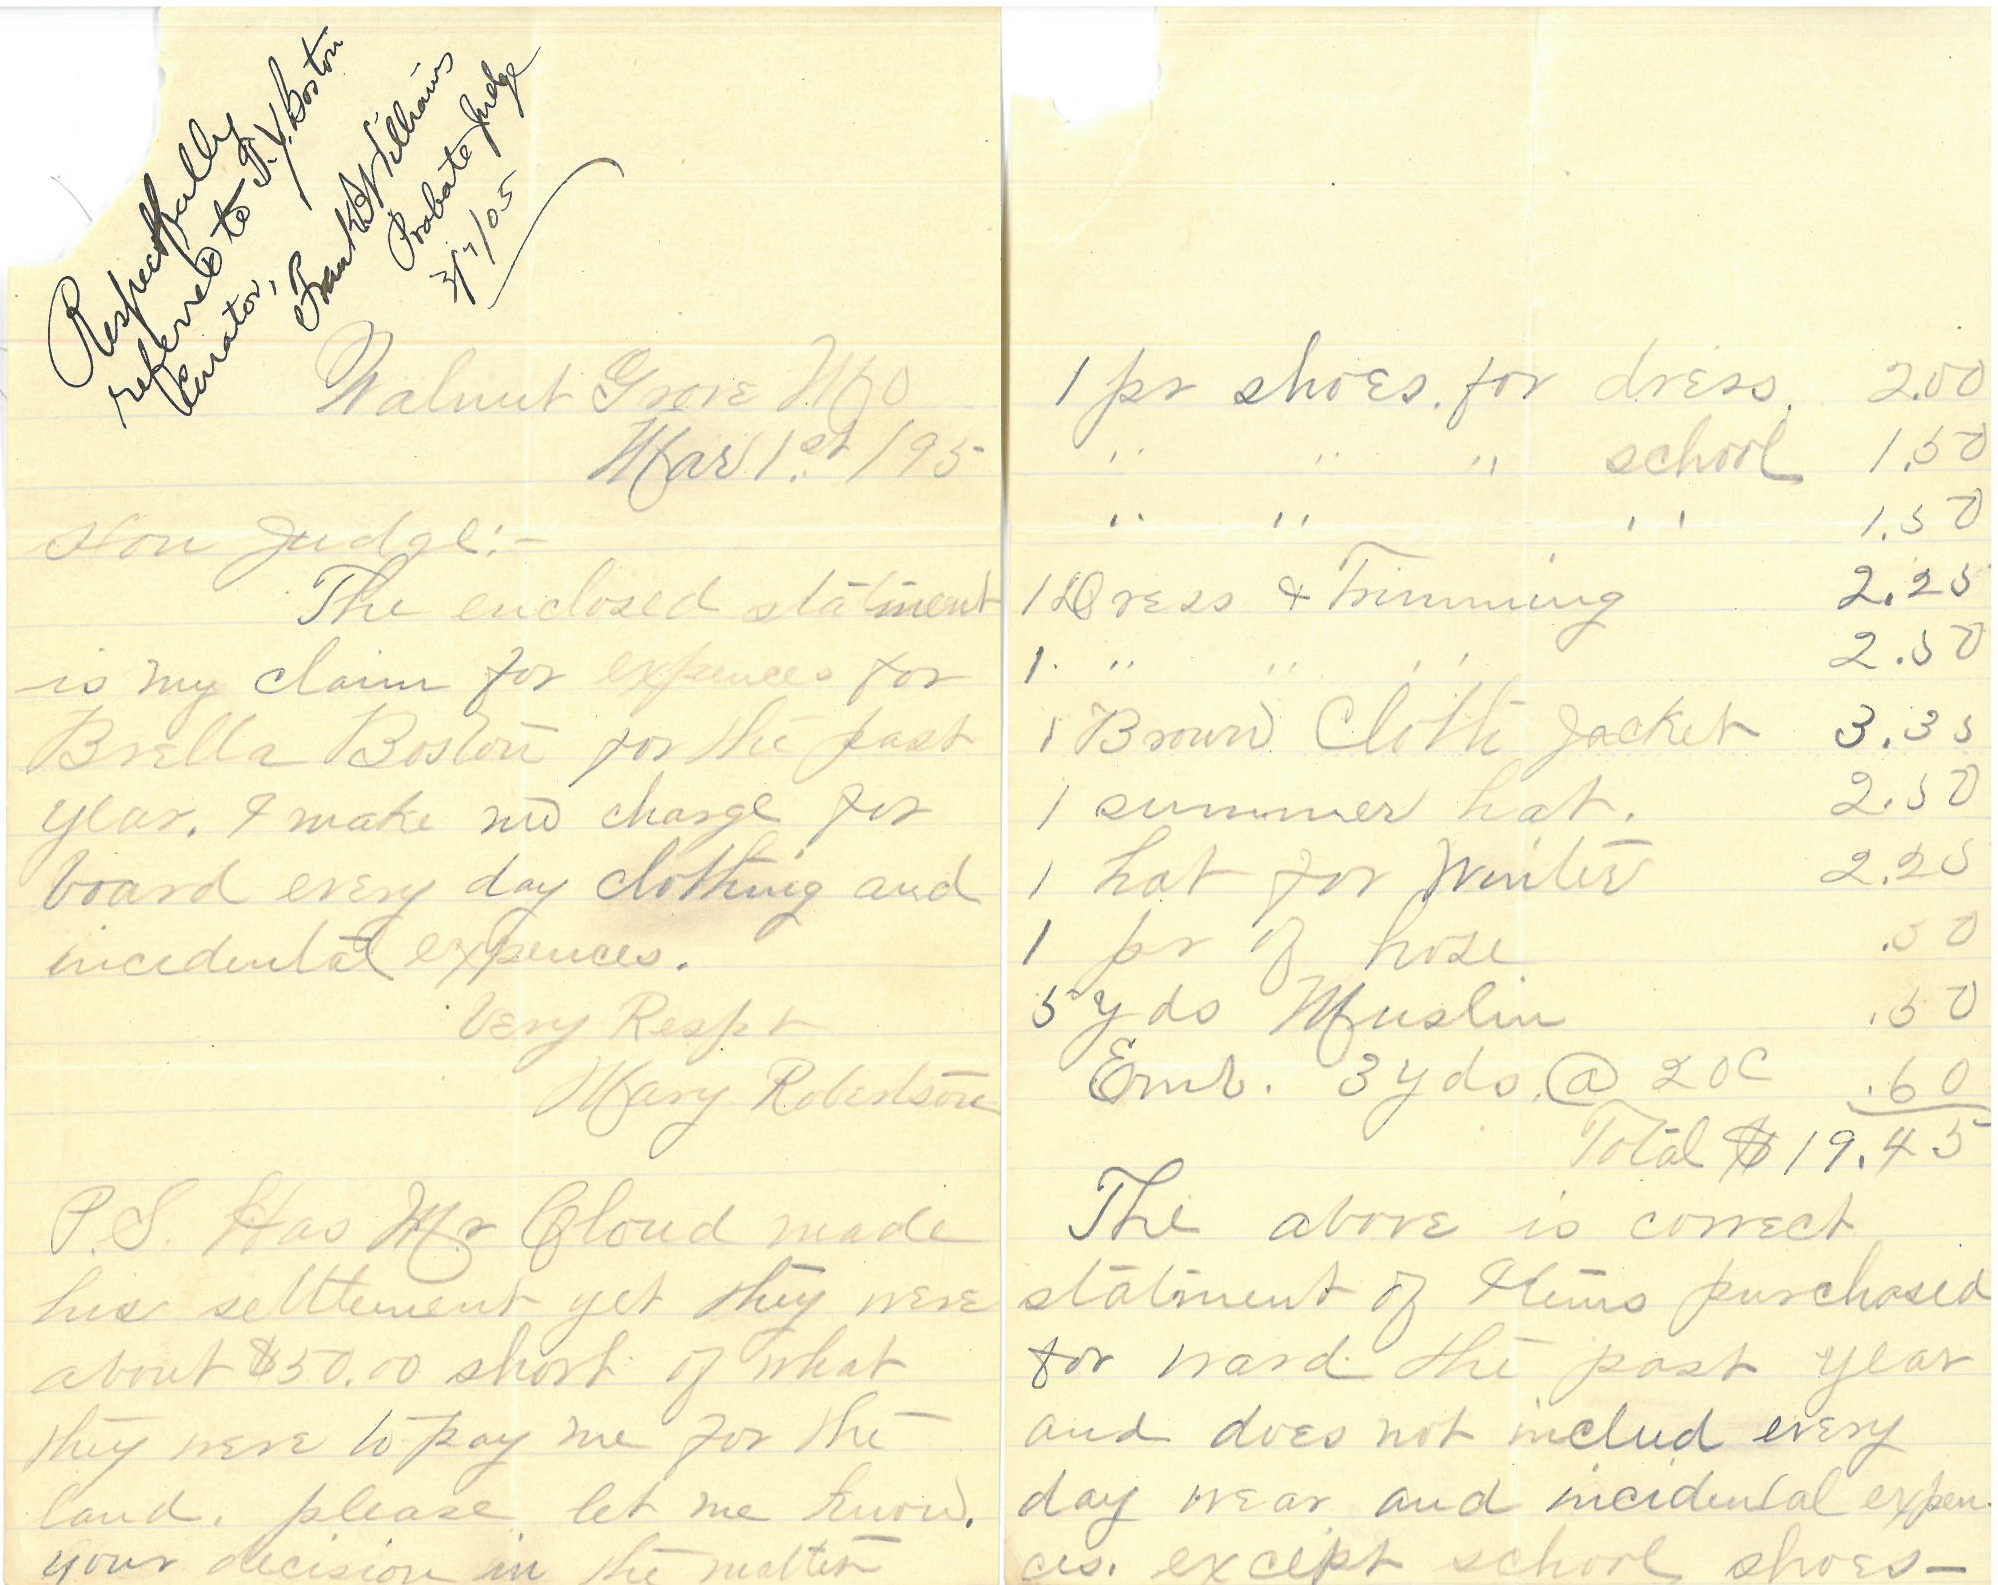 Respectfully
referred to T. Y. Boston
Curator,
Frank Williams
Probate Judge
3/7/05
Walnut Grove Mo
Mar 1.st 1905
Hon Judge:-
The enclosed statment
is my claim for expences for
Brella Boston for the past
year. I make no charge for
board every day clothing and
incidental expences.
Very Respt
Mary Robertson
P.S. Has Mr Cloud made
his settlement yet they were
about $50.00 short of what
they were to pay me for the
land. please let me know.
your decision in the matter
1 pr shoes. for dress. 2.00
" " " school 1.50
" " " 1.50
1 Dress & Trimming 2.25
1. " " " 2.50
1 Brown Cloth Jacket 3.35
1 summer hat. 2.50
1 hat for Winter 2.25
1 pr of hose .50
5 yds Muslin .50
Emb. 3 yds. @ 20c .60
Total $19.45
The above is correct
statment of items purchased
for ward the past year
and does not includ every
day wear and incidental expen-
ces. except school shoes-